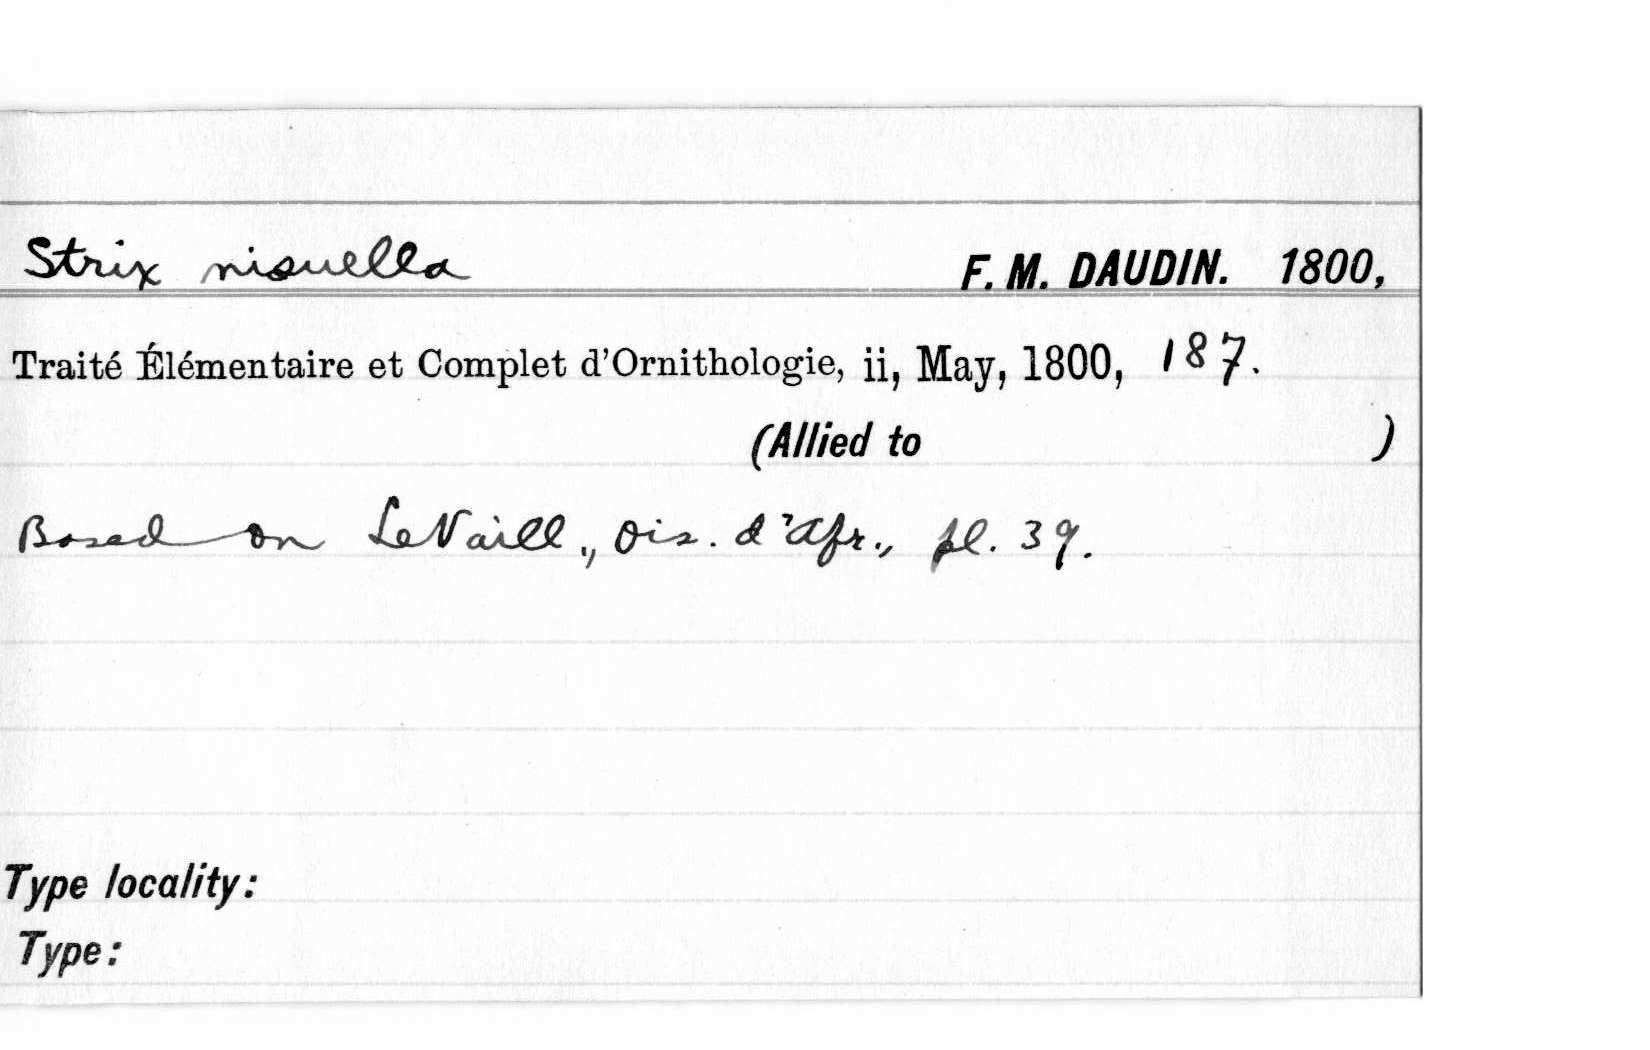 Strix nisuella F. M. DAUDIN. 1800,
Traité Élémentaire et Complet d'Ornithologie, ii, May, 1800, 187.
(Allied to )
Based on LeVaill., Ois. d'Afr., pl. 39.
Type locality:
Type: